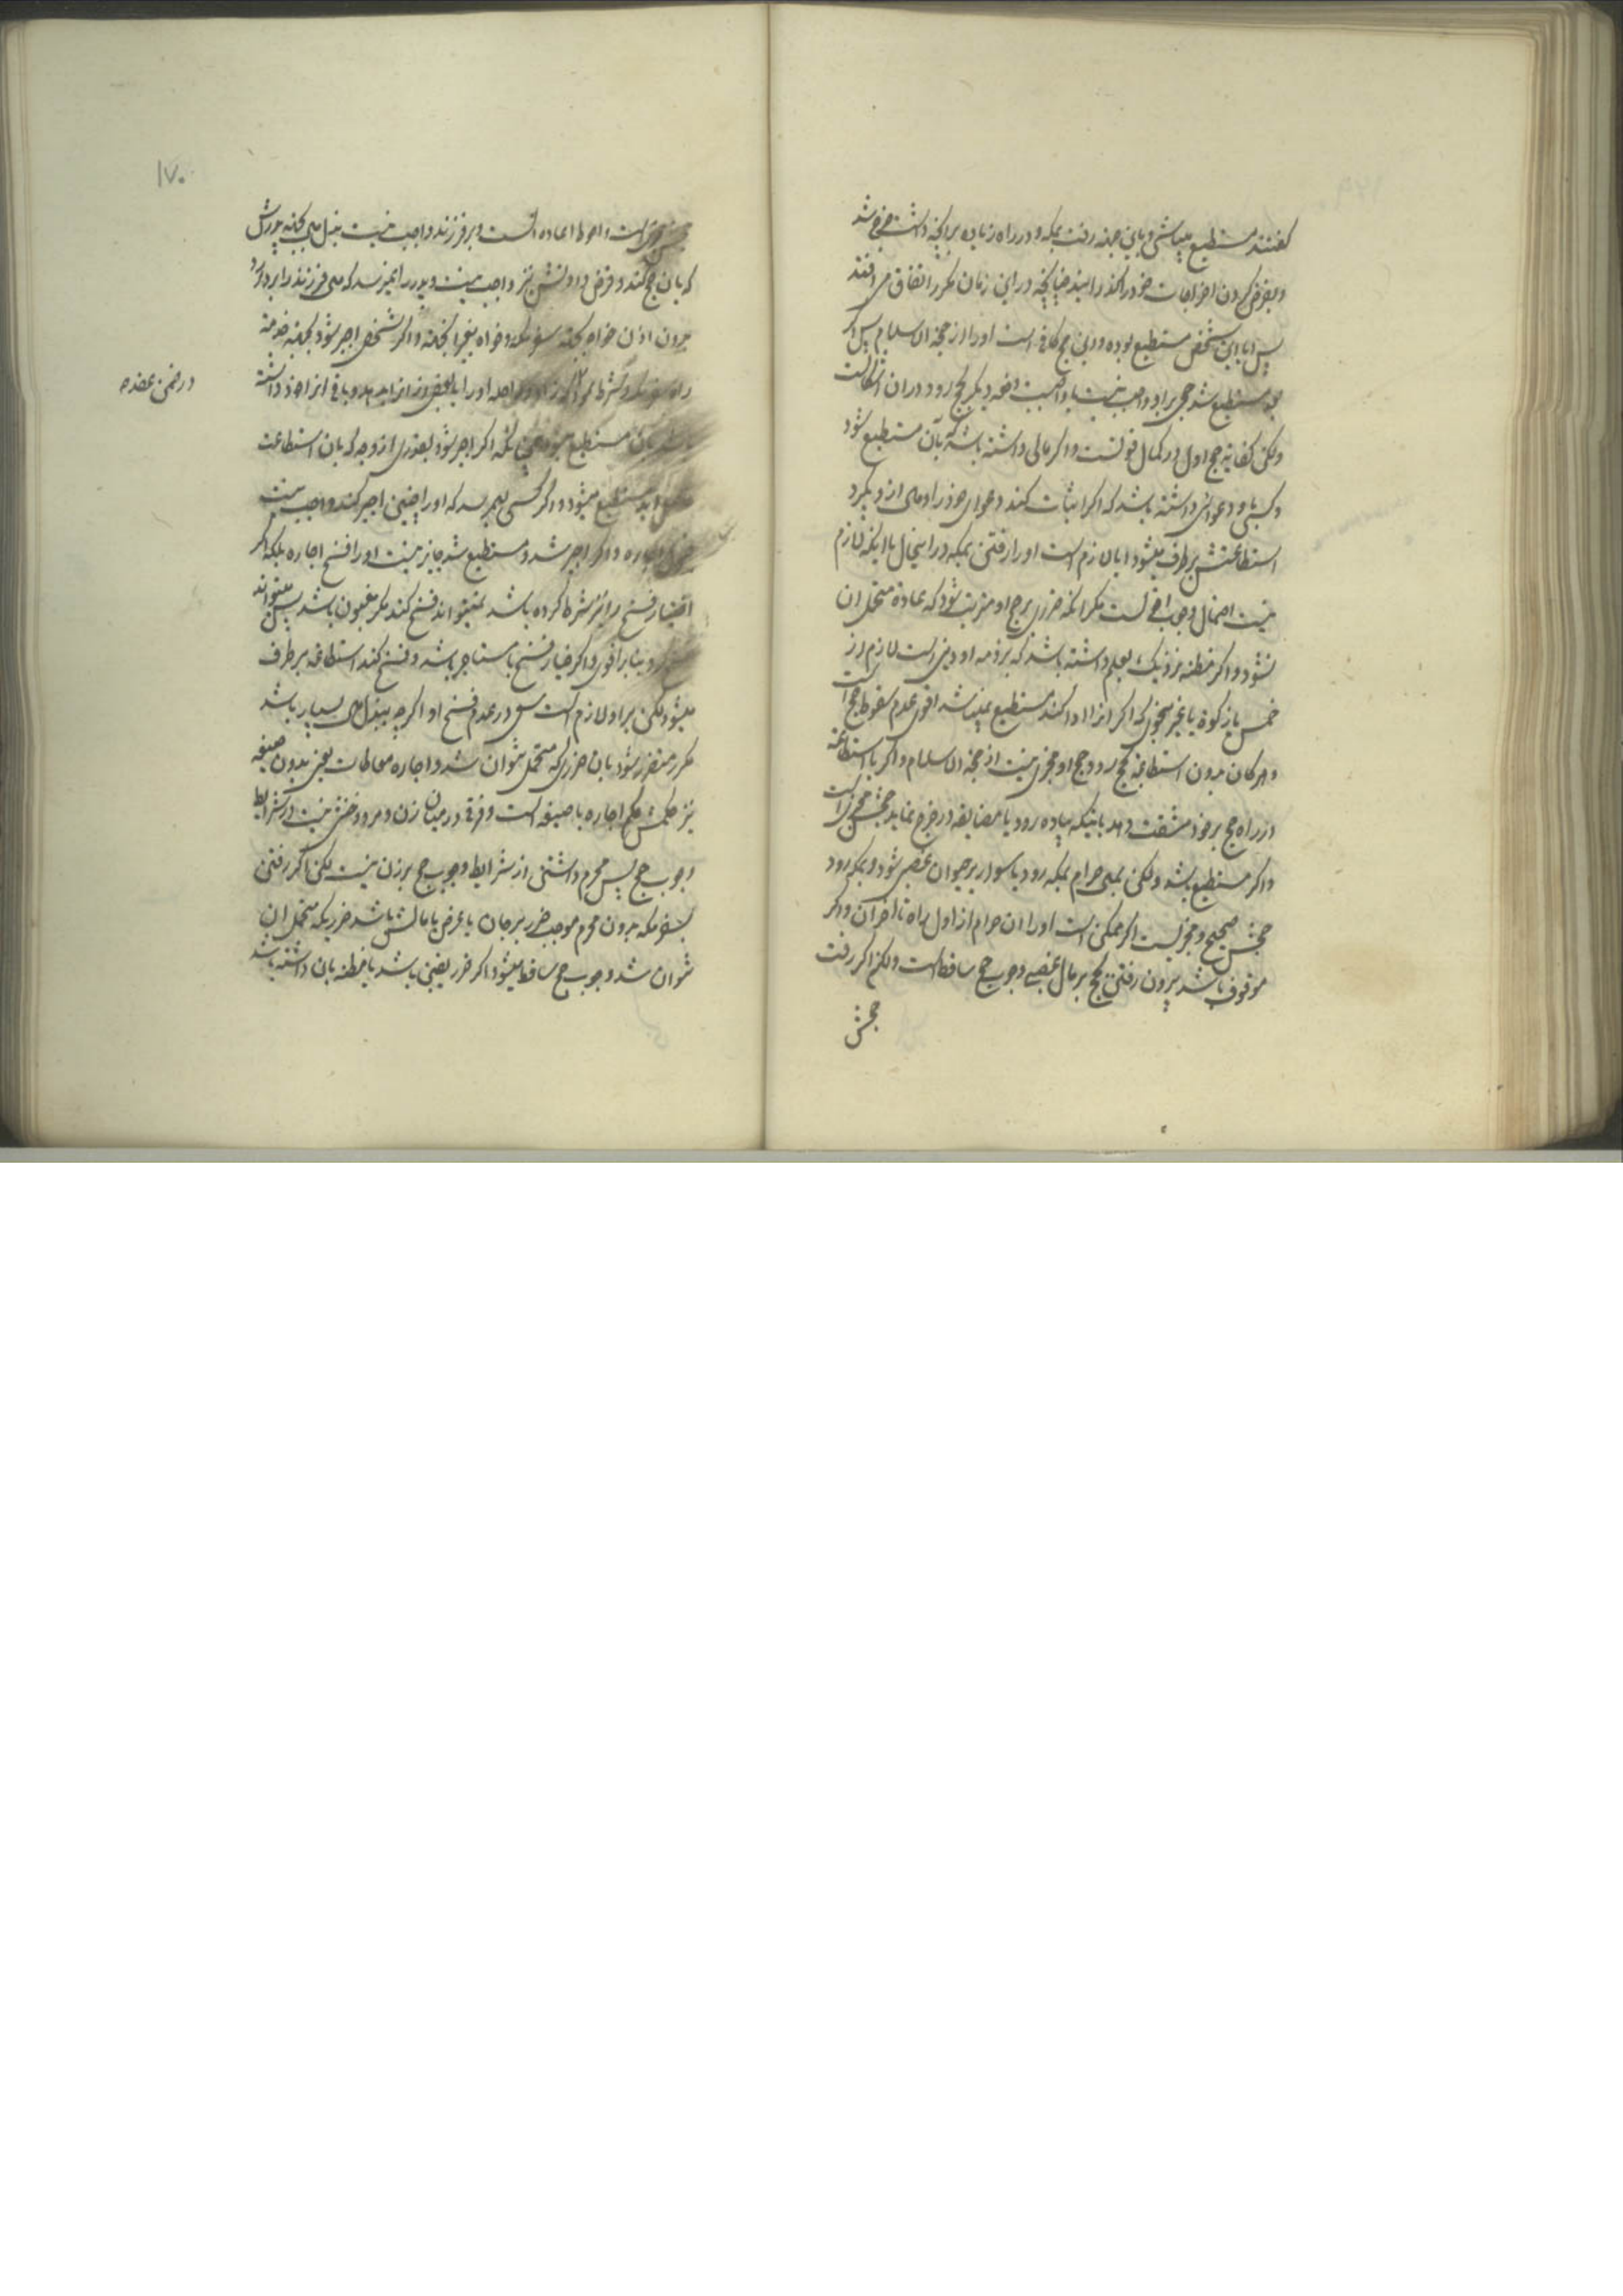 گفتند مستطیع میباشی و باین جهة رفت بمکه و در راه زیاده بر آنچه داشت خرج شد
و بقرض کردن اخراجات خود را گذرانید چنانچه در این زمان مکرر اتفاق می افتد
پس آیا این شخص مستطیع بوده و این حج کافی است او را از حجة الاسلام پس اگر
مستطیع شد حجی بر او واجب نیست یا واجبست دفعه دیگر بحج رود در آن اشکالست
ولکن کفایة حج اول در کمال قوتست و اگر مالی داشته باشد که بآن مستطیع شود
و کسی با او دعوائی داشته باشد که اگر اثبات کند دعوای خود را و مال از او بگیرد
استطاعتش برطرف میشود ایا لازم است او را رفتن بمکه در اینحال یا اینکه لازم
نیست احتمال وجوب اقوی است مکر آنکه ضرری بر حج او مترتب شود که عادة متحمل آن
نشود و اگر مظنه نزدیک بعلم داشته باشد که بر ذمه او دینی است لازم از
خمس یا زکوة یا غیر آن بنحوی که اگر آنرا ادا کند مستطیع نمیباشد اقوی عدم سقوط حج است
و هر کان بدون استطاعة بحج رود حج او مجزی نیست از حجة الاسلام و اگر با استطاعة
در راه حج بر خود مشقت دهد باینکه پیاده رود یا مضایقه در خرج نماید حجش مجزی است
و اگر مستطیع باشد ولکن بمال حرام بمکه رود یا سوار بر حیوان غصبی شود و بمکه رود
حجش صحیح و مجزیست اگر ممکن است او را آن حرام از اول راه تا آخر آن و اگر
موقوف باشد بیرون رفتن بحج بر مال غصبی وجوب حج ساقط است ولکن اگر رفت
حجش
١٧٠
حجش مجزی است و احوط اعاده است و بر فرزند واجب نیست بذل مال بجهة پدرش
که بآن حج کند و قرض دادنش نیز واجب نیست و پدر را نمیرسد که مال فرزند را بردارد
بدون اذن خواه بجهة سفر مکه و خواه بغیر آنجهة و اگر شخصی اجیر شود بجهة خدمة
راه سفر مکه و شرط نمود که زاد و راحله او را یا بعض از آنرا بدهد و باقی آنرا خود داشته
باشد بآن مستطیع میشود همچنانکه اگر اجیر شود بقدری از وجه که بآن استطاعت
حاصل آید مستطیع میشود و اگر کسی بهم رسد که او را چنین اجیر کند واجب نیست
قبول اجاره و اگر اجیر شد و مستطیع شد جایز نیست او را فسخ اجاره بلکه اگر
اختیار فسخ را نیز شرط کرده باشد نمیتواند فسخ کند مکر مغبون باشد پس میتواند
بنابر اقوی و اگر خیار فسخ با مستاجر باشد و فسخ کند استطاعة برطرف
میشود لکن بر او لازم است سعی در عدم فسخ او اگر چه ببذل مال بسیار باشد
مکر متضرر شود بآن ضرری که متحمل نتوان شد و اجاره معاطات یعنی بدون صیغه
نیز حکمش حکم اجاره با صیغه است و فرقی در میان زن و مرد و خنثی نیست در شرایط
وجوب حج پس محرم داشتن از شرایط وجوب حج بر زن نیست لکن اگر رفتن
بسفر مکه بدون محرم موجب ضرر بر جان یا عرض یا مالش باشد ضرریکه متحمل آن
نتوان شد وجوب حج ساقط میشود اگر ضرر یقینی باشد یا مظنه بآن داشته باشد
در ضمن عقد